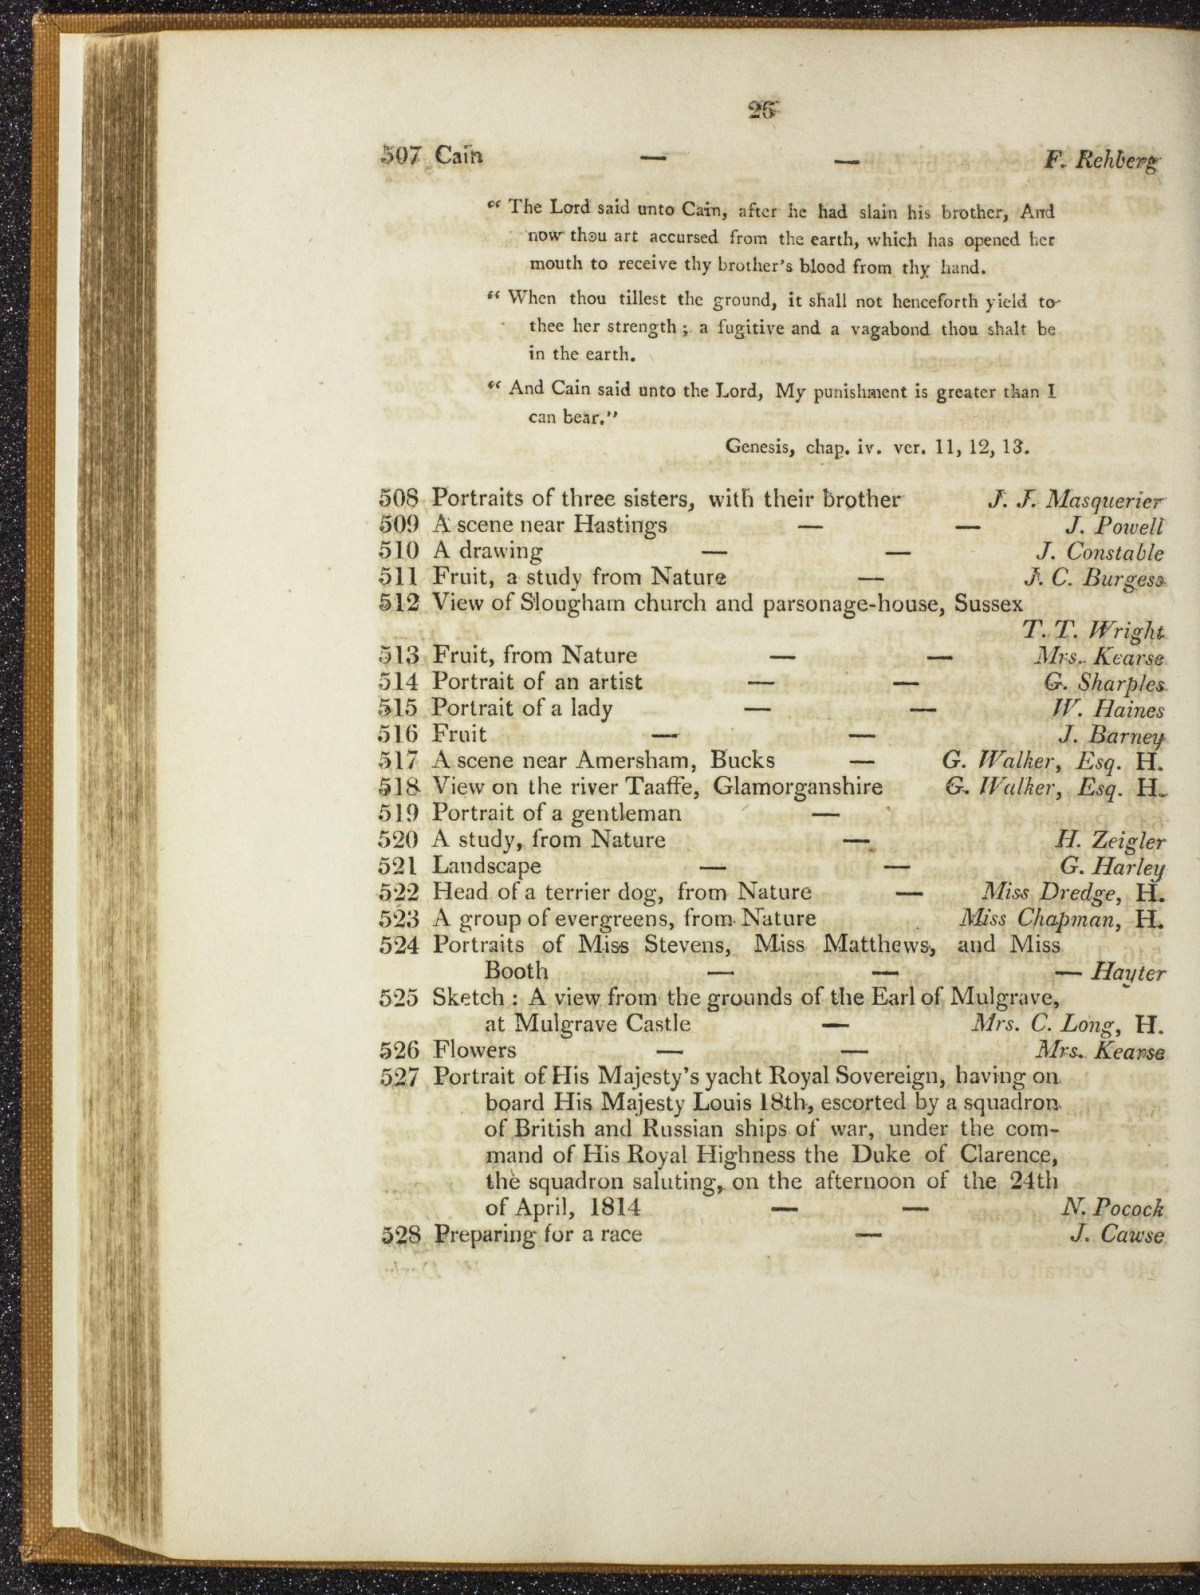 26
507 Cain — — F. Rehberg
“ The Lord said unto Cain, after he had slain his brother, And
now thou art accursed from the earth, which has opened her
mouth to receive thy brother’s blood from thy hand.
“ When thou tillest the ground, it shall not henceforth yield to
thee her strength ; a fugitive and a vagabond thou shalt be
in the earth.
“ And Cain said unto the Lord, My punishment is greater than I
can bear.”
Genesis, chap. iv. ver. 11, 12, 13.
508 Portraits of three sisters, with their brother J. J. Masquerier
509 A scene near Hastings — — J. Powell
510 A drawing — — J. Constable
511 Fruit, a study from Nature — J. C. Burgess
512 View of Slougham church and parsonage-house, Sussex
T. T. Wright
513 Fruit, from Nature — — Mrs. Kearse
514 Portrait of an artist — — G. Sharples
515 Portrait of a lady — — W. Haines
516 Fruit — — J. Barney
517 A scene near Amersham, Bucks — G. Walker, Esq. H.
518 View on the river Taaffe, Glamorganshire G. Walker, Esq. H.
519 Portrait of a gentleman —
520 A study, from Nature — H. Zeigler
521 Landscape — — G. Harley
522 Head of a terrier dog, from Nature — Miss Dredge, H.
523 A group of evergreens, from Nature Miss Chapman, H.
524 Portraits of Miss Stevens, Miss Matthews, and Miss
Booth — — — Hayter
525 Sketch : A view from the grounds of the Earl of Mulgrave,
at Mulgrave Castle — Mrs. C. Long, H.
526 Flowers — — Mrs. Kearse
527 Portrait of His Majesty’s yacht Royal Sovereign, having on
board His Majesty Louis 18th, escorted by a squadron
of British and Russian ships of war, under the com-
mand of His Royal Highness the Duke of Clarence,
the squadron saluting, on the afternoon of the 24th
of April, 1814 — — N. Pocock
528 Preparing for a race — J. Cawse